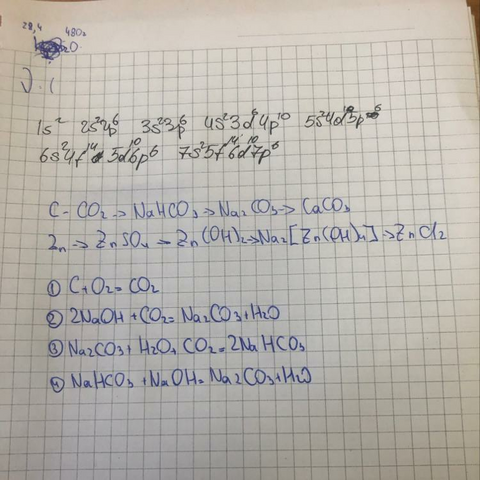 28,4 480₂
1s² 2s²2p⁶ 3s²3p⁶ 4s²3d⁶4p¹⁰ 5s²4d¹⁰5p⁶
6s²4f¹⁴5d¹⁰6p⁶ 7s²5f¹⁴6d¹⁰7p⁶
C - CO₂ → NaHCO₃ → Na₂CO₃ → CaCO₃
Zn → ZnSO₄ → Zn(OH)₂ → Na₂[Zn(OH)₄] → ZnCl₂
① C + O₂ = CO₂
② 2NaOH + CO₂ = Na₂CO₃ + H₂O
③ Na₂CO₃ + H₂O + CO₂ = 2NaHCO₃
④ NaHCO₃ + NaOH = Na₂CO₃ + H₂O